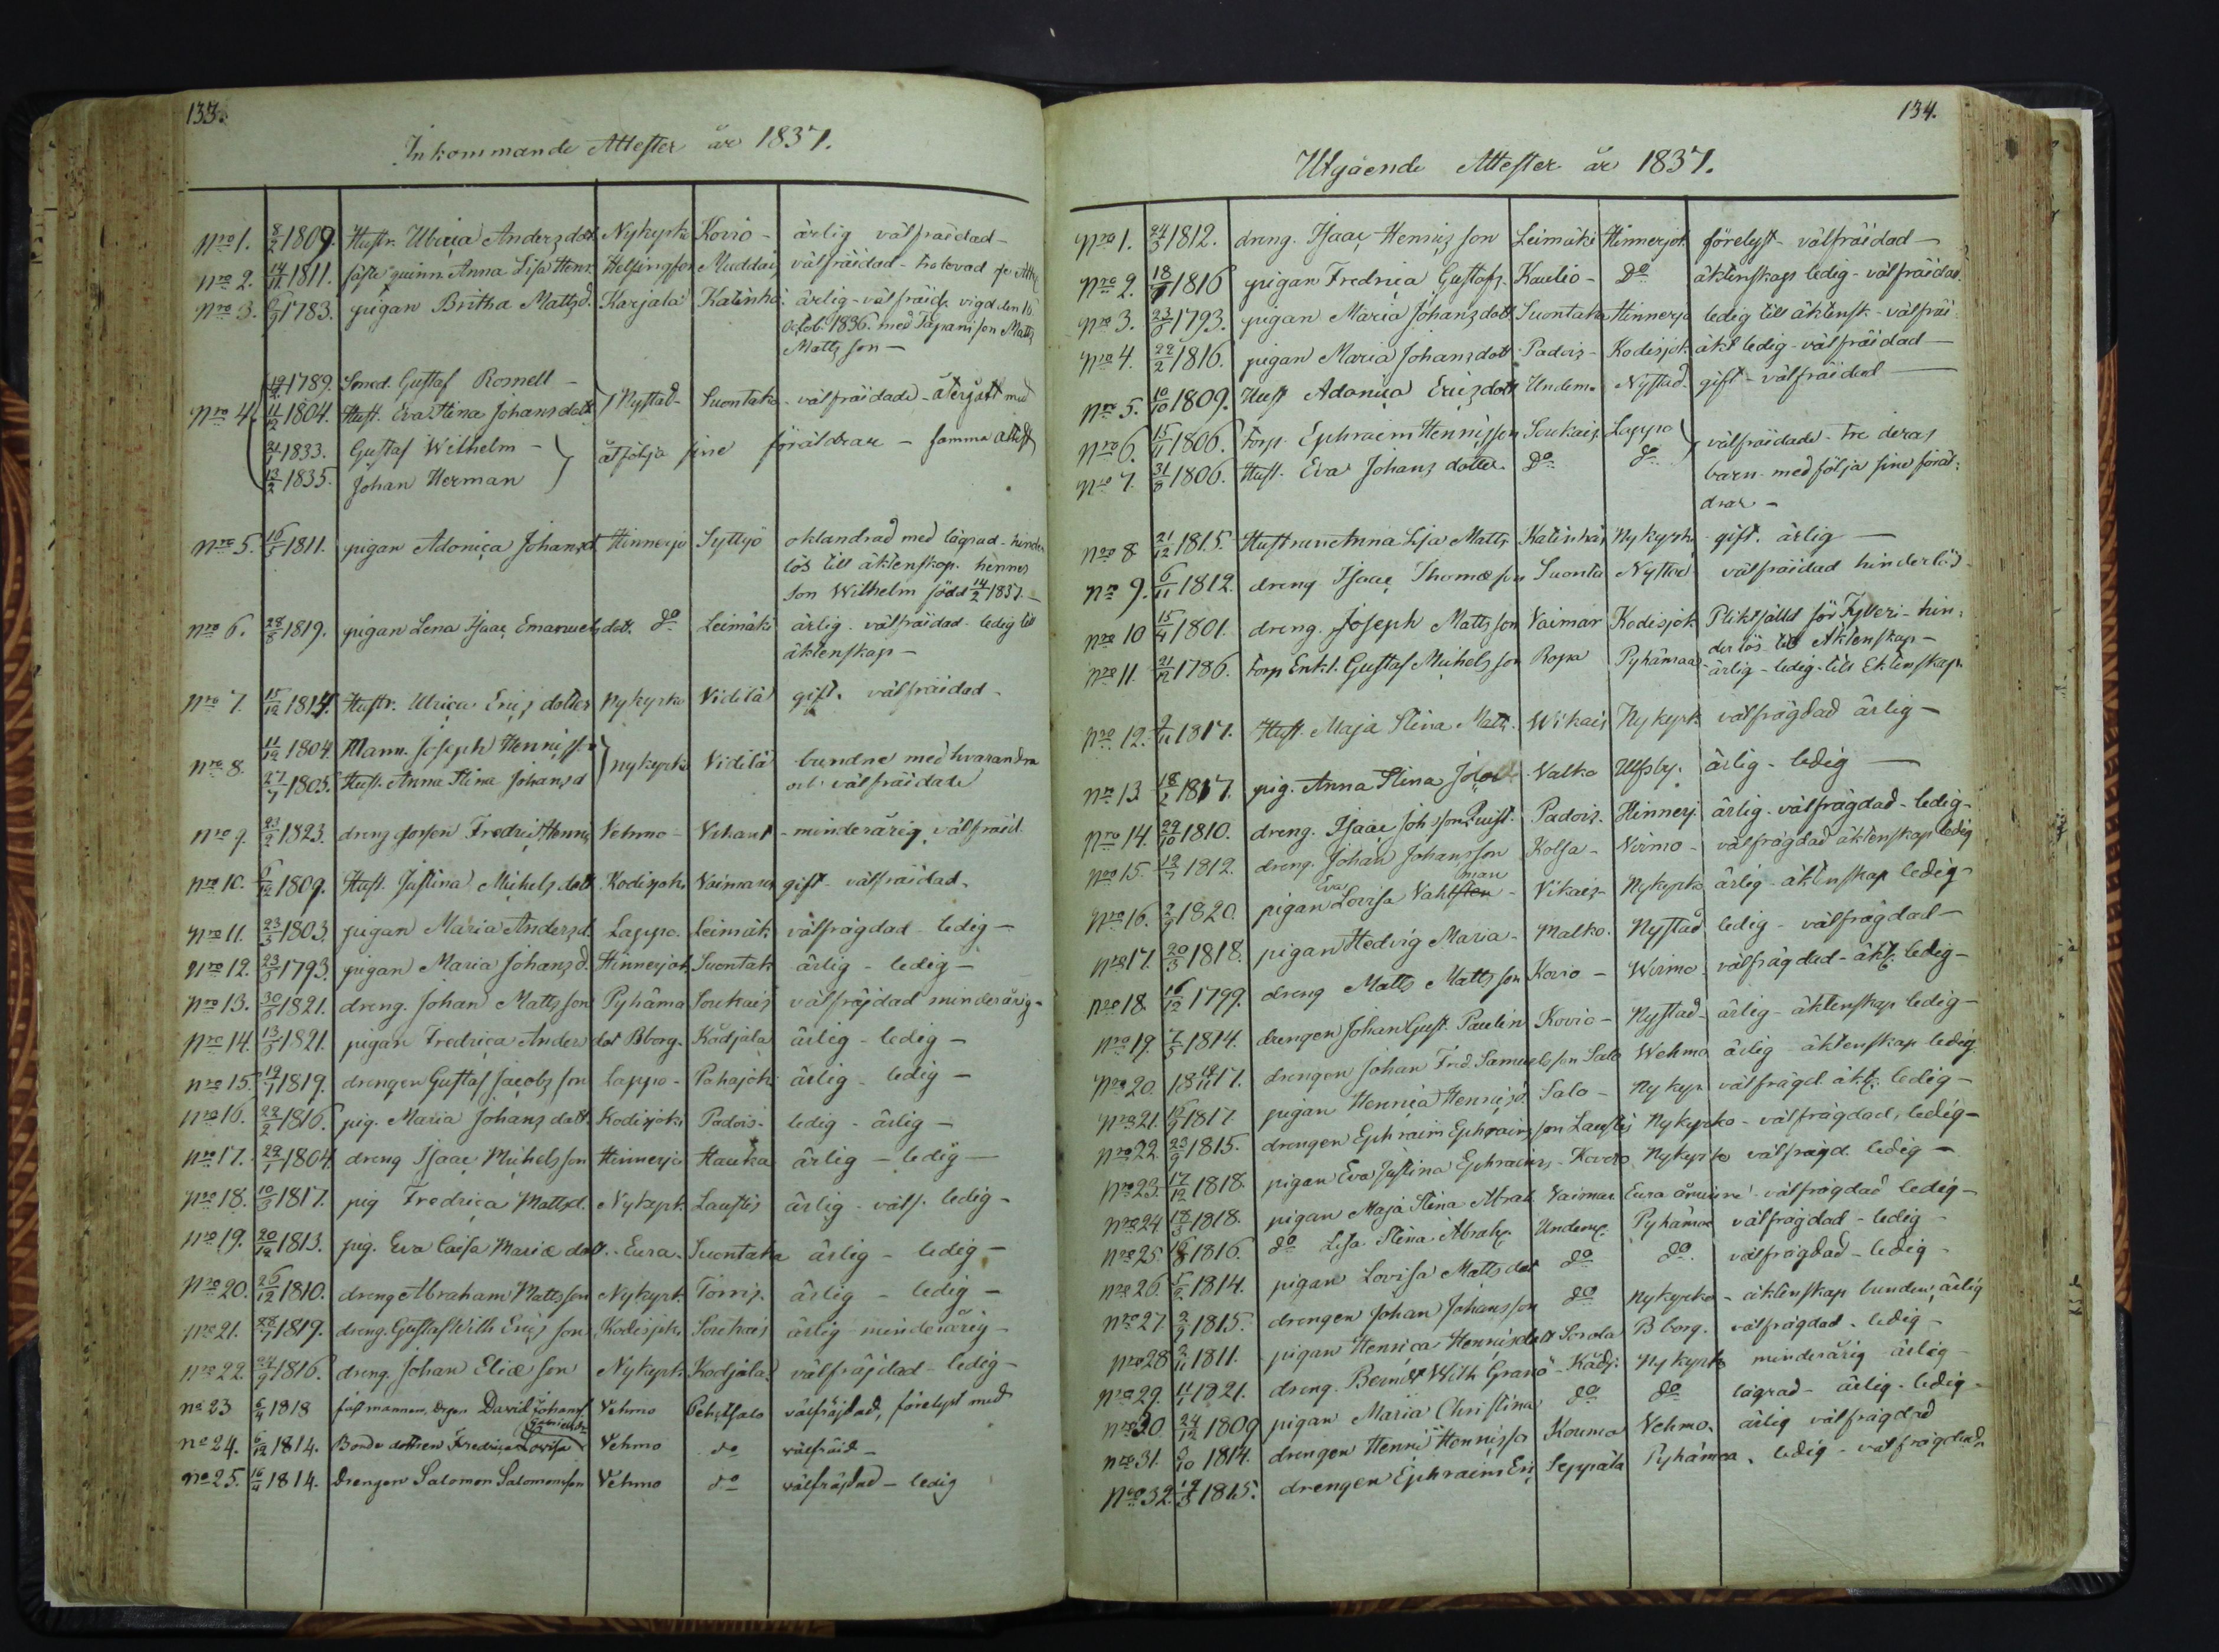 133.
Inkommande Attester år 1837.
Nro 1. 8/2 1809. Hustr. Ulrica Andersdott Nykyrko Kovio - ärlig välfräidad -
Nro 2. 14/11 1811. fästeqvinn. Anna Lisa Henr. Helsingfor Muddais välfräidad -
Nro 3. 6/9 1783. pigan Britha Mattsd. Karjala Katinhä. ärlig - välfräid. vigd den 16
octob. 1836. med Matts
Mattsson -
19/2 1789. Smed. Gustaf Romell -
Nro 4. 11/12 1804. Hust. Eva Stina Johansdott } Nystad - Suontaka - välfräidade - återgått med
21/1 1833. Gustaf Wilhelm -
13/2 1835. Johan Herman } åtfölja sine föräldrar - samma attest
Nro 5. 16/5 1811. pigan Adonica Johansd. Hinnerjo Syttyö oklandrad med lägrad - hinder
lös till äktenskap. hennes
son Wilhelm född 14/2 1837. -
Nro 6. 28/8 1819. pigan Lena Isaac Emanuelsdott. do Leimäki ärlig - välfräidad - ledig till
äktenskap -
Nro 7. 15/12 1814. Hustr. Ulrica Ericsdotter Nykyrko Vidilä gift. välfräidad -
11/12 1804. Mann. Joseph Henricsson
Nro 8. } nykyrko Vidilä bundne med hvarandra
27/7 1805. Hust. Anna Stina Johansd och välfräidade
Nro 9. 23/2 1823. dreng gossen Fredric Henric Vehmo - Vihant - minderårig, välfräid.
Nro 10. 6/12 1809. Hust. Justina Michelsdott Kodisjoki Vaimaro gift - välfräidad -
Nro 11. 23/3 1803. pigan Maria Andersd. Lappo. Leimäk. välfrägdad - ledig -
Nro 12. 23/8 1793. pigan Maria Johansd. Hinnerjok Suontak ärlig - ledig -
Nro 13. 30/8 1821. dreng. Johan Mattsson Pyhäma Soukais välfräjdad minderårig -
Nro 14. 13/3 1821. pigan Fredrica Anders dot Bborg. Kådjala ärlig - ledig -
Nro 15. 19/1 1819. drengen Gustaf Jacobsson Lappo - Pahajoki ärlig - ledig -
Nro 16. 22/2 1816. pig. Maria Johansdott. Kodisjoki Padois - ledig - ärlig -
Nro 17. 29/1 1804. dreng Isaac Michelsson Hinnerjo Hauka ärlig - ledig -
Nro 18. 10/3 1817. pig Fredrica Mattsd. Nykyrk. Laustis ärlig - välf. ledig -
Nro 19. 20/12 1813. pig. Eva Caisa Mariædott. - Eura - Suontaka ärlig - ledig -
Nro 20. 26/12 1810. dreng Abraham Mattsson Nykyrk. Torris. ärlig - ledig -
Nro 21. 28/7 1819. dreng. Gustaf Wilh Ericsson Kodisjok. Soukais ärlig - minderårig -
Nro 22. 24/9 1816. dreng. Johan Eliæson Nykyrk Kodjala välfräjdad - ledig -
No 23 6/4 1818 fästmannen, drgn David Johans Vehmo Pehtsalo välfräjdad, förelyst med
No 24. 6/12 1814. Bonde dottren Fredrica Lovisa Vehmo do välfräid -
No 25. 16/11 1814. Drengen Salomon Salomonsson Vehmo do välfräjdad - ledig
134.
Utgående Attester år 1837.
Nro 1. 24/3 1812. dreng. Isaac Henricsson Leimäki Hinnerjok. förelyst - välfräidad -
Nro 2. 18/7 1816 pigan Fredrica Gustafs. Kaulio - Do äktenskaps ledig - välfräidad
Nro 3. 23/8 1793. pigan Maria Johansdott Suontaka Hinnerjo ledig till äktensk - välfräi
Nro 4. 22/2 1816. pigan Maria Johansdott Padois - Kodisjok äkt ledig - välfräidad -
Nro 5. 10/10 1809. Hust Adonica Ericsdott Undem. Nystad. gift - välfräidad -
Nro 6. 15/11 1806. torp. Ephraim Henricsson Soukais Lappo } välfräidade - tre deras
Nro 7. 31/8 1806. Hust. Eva Johans dotter. Do do barn medfölja sine föräl-
drar -
Nro 8 21/12 1815. Hustrun Anna Lisa Matts Katinhä Nykyrk gift. ärlig -
Nro 9. 6/11 1812. dreng Isaac Thomæson Suonta Nystad välfräidad hinderlös
Nro 10 15/4 1801. dreng. Joseph Mattsson Vaimar Kodisjok Pliktfälld för Fylleri - hin-
derlös till Aktenskap -
Nro 11. 21/12 1786. torp Enkl. Gustaf Michelsson Ropa Pyhämaa - ärlig - ledig - till Ektenskap
Nro 12. 2/11 1817. Hust. Maja Stina Matts. Wikais Nykyrk välfrägdad ärlig -
Nro 13 18/2 1817. pig. Anna Stina Valko Ulfsby. ärlig - ledig -
Nro 14. 29/10 1810. dreng. Isaac Johsson Quist. Padois. Hinnerj. ärlig - välfrägdad - ledig -
Nro 15. 12/7 1812. dreng. Johan Johansson Kolsa - Virmo - välfrägdad äktenskap ledig
Nro 16. 2/9 1820. pigan Eva Lovisa Vahlsten man - Vikais - Nykyrko ärlig - äktenskap ledig -
Nro 17. 20/3 1818. pigan Hedvig Maria - Malko. Nystad ledig - välfrägdad -
Nro 18. 16/12 1799. dreng Matts Mattsson Kovio - Wirmo - välfrägdad - äkt. ledig -
Nro 19. 7/5 1814. drengen Johan Gust. Paulin Kovio - Nystad - ärlig - äktenskap ledig -
Nro 20. 18 18/11 17. drengen Johan Fred. Samuelsson Salo Wehmo ärlig äktenskap ledig.
Nro 21. 1817. pigan Henrica Henricsd. Salo - Nykyr välfrägd. äkt. ledig -
Nro 22. 23/9 1815. drengen Ephraim Ephraimsson Laustis Nykyrko - välfrägdad, ledig -
Nro 23. 17/12 1818. pigan Eva Justina Ephraims. - Kovero Nykyrko välfrägd. ledig -
Nro 24 18/3 1818. pigan Maja Stina Abrah Vaimar Eura välfrägdad ledig -
Nro 25. 1816. do Lisa Stina Abrah. Undem. Pyhämaa välfrägdad - ledig -
Nro 26. 5/6 1814. pigan Lovisa Mattsdot do do. välfrägdad - ledig -
Nro 27. 2/9 1815. drengen Johan Johansson do Nykyrko - äktenskap bunden, ärlig
Nro 28 2/11 1811. pigan Henrica Henricsdott Sorola Bborg. välfrägdad - ledig -
Nro 29. 11/1 1821. dreng. Berndt Wilh Granö - Kådj. Nykyrko minderårig ärlig -
Nro 30. 24/12 1809 pigan Maria Christina do do lägrad - ärlig - ledig -
Nro 31. 9/10 1814. drengen Henric Henricsso Kouma Vehmo. ärlig välfrägdad
Nro 32. 17/3 1815. drengen Ephraim Eric Seppälä Pyhämaa. ledig - välfrägdad.